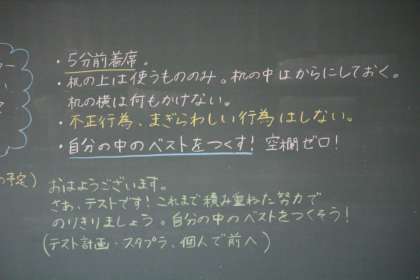 ・5分前着席。
・机の上は使うもののみ。机の中はからにしておく。
机の横は何もかけない。
・不正行為、まぎらわしい行為はしない。
・自分の中のベストをつくす！空欄ゼロ！
の予定）
おはようございます。
さあ、テストです！これまで積み重ねた努力で
のりきりましょう。自分の中のベストをつくそう！
（テスト計画・スタプラ、個人で前へ）